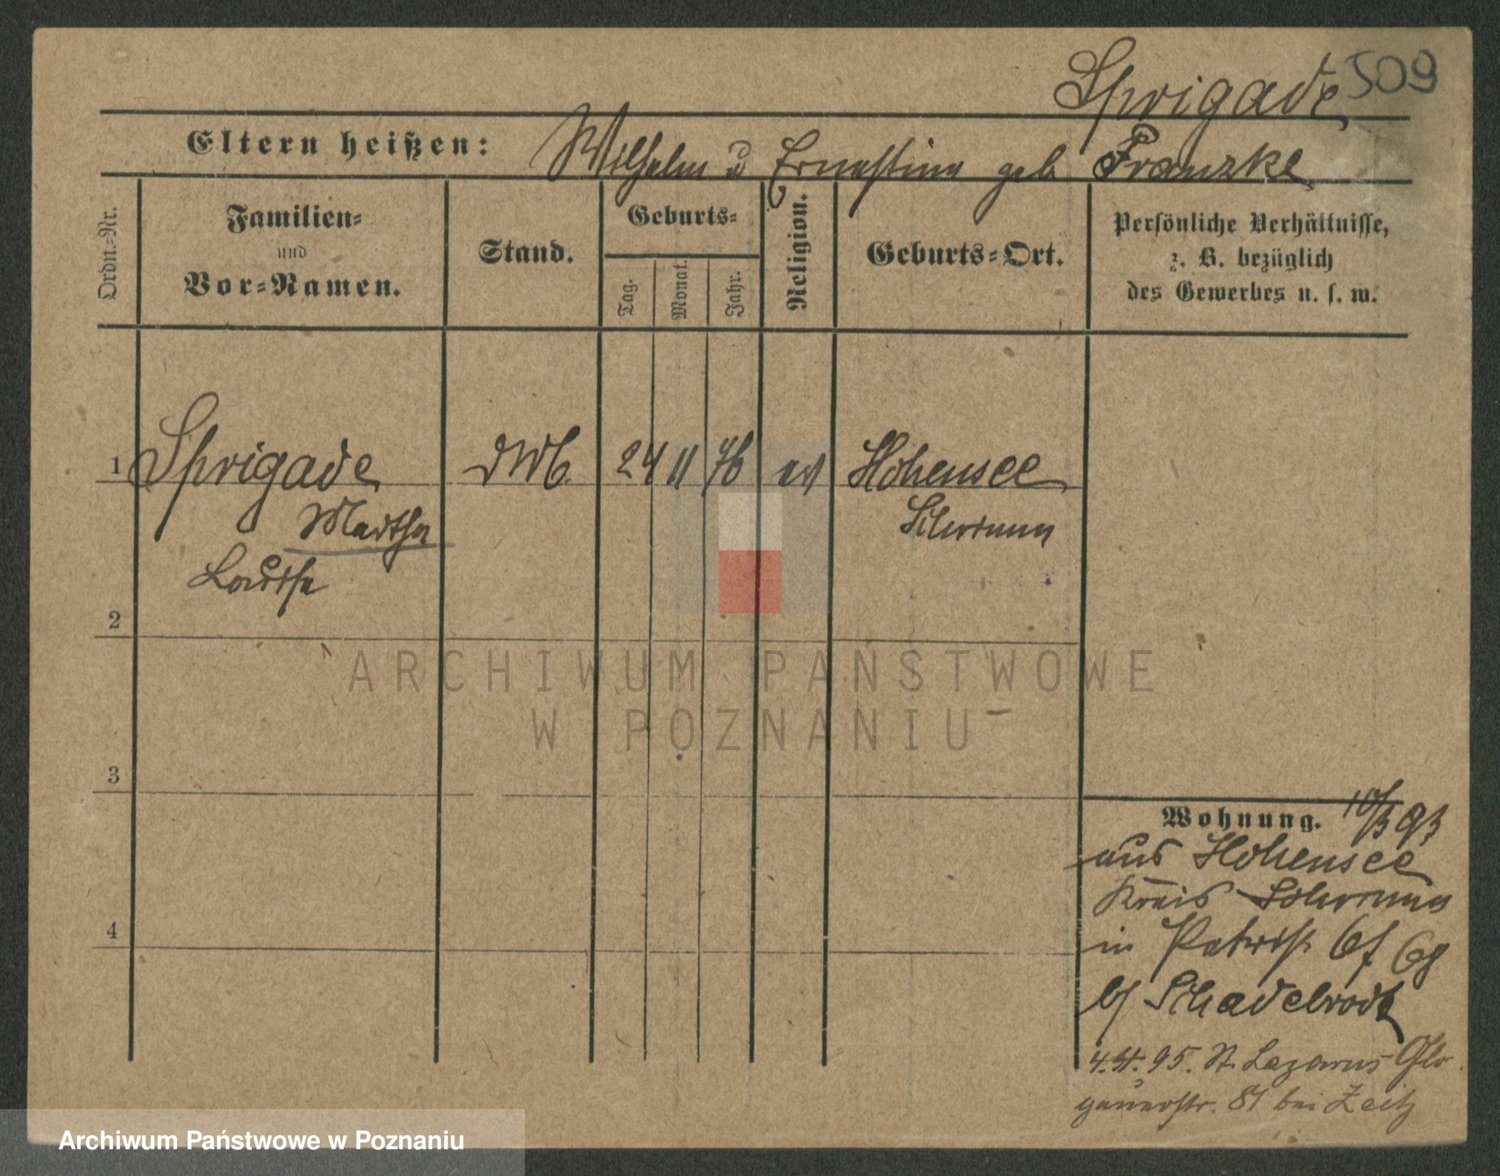 Sprigade 509
Eltern heißen: Wilhelm u Ernestine geb Franzke
Ordn.-Nr.
Familien-
und
Vor-Namen.
Stand.
Geburts-
Tag.
Monat.
Jahr.
Religion.
Geburts-Ort.
Persönliche Verhältnisse,
z. B. bezüglich
des Gewerbes u. s. w.
1 Sprigade 24 11 76 ev Hohensee
Martha
Schrimm
2
3
4
Wohnung. 10/3 93
aus Hohensee
Kreis Schrimm
in
b/ Schadebrodt
95. St. Lazarus Glo
gauerstr. 81 bei Zeitz
ARCHIWUM PAŃSTWOWE
W POZNANIU
Archiwum Państwowe w Poznaniu